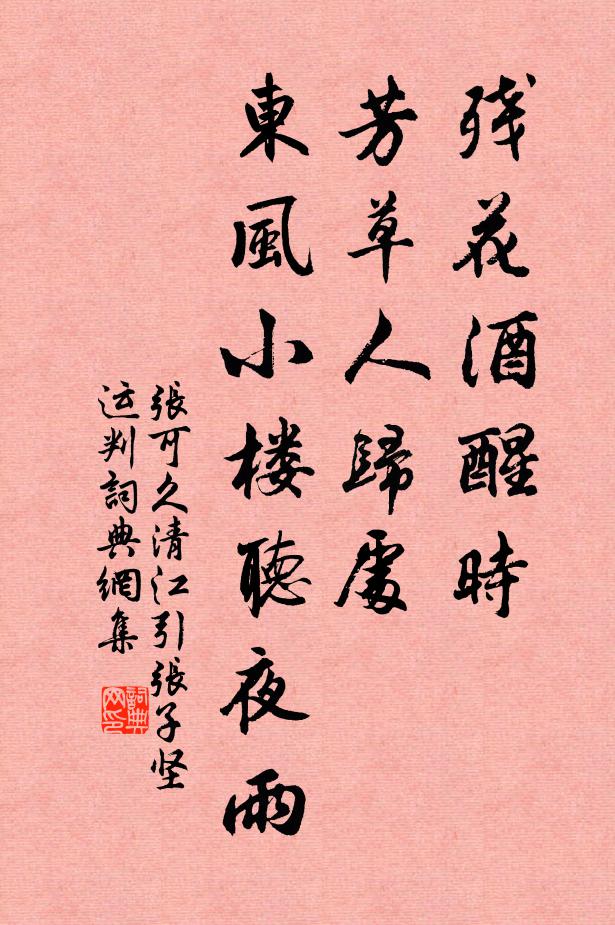 残花酒醒時
芳草人歸處
東風小楼聽夜雨
張可久清江引張子坚
运判詞典網集
詞典网印